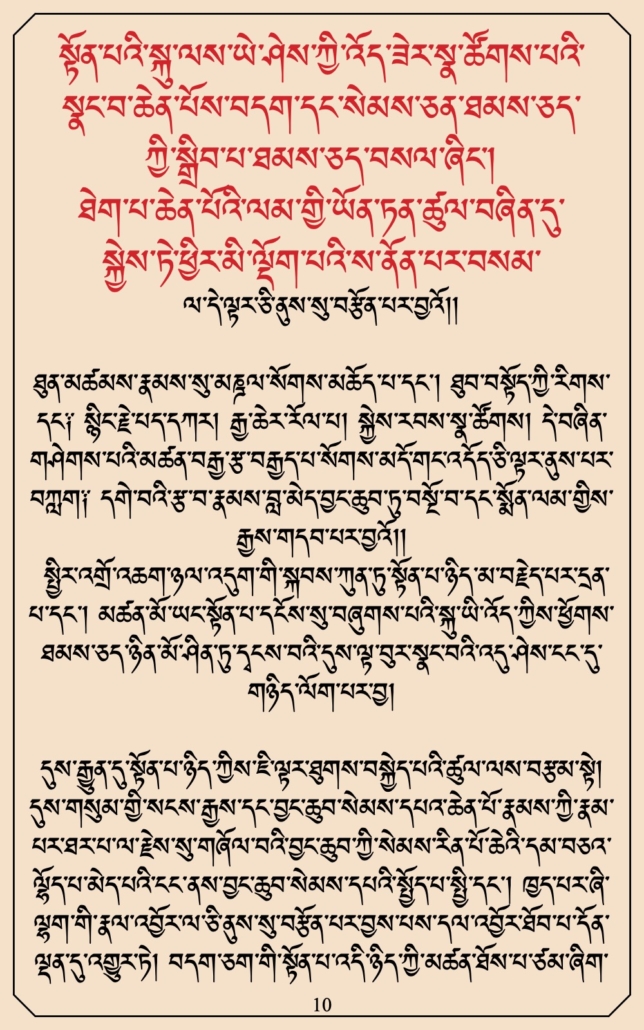 སྟོན་པའི་སྐུ་ལས་ཡེ་ཤེས་ཀྱི་འོད་ཟེར་སྣ་ཚོགས་པའི་
སྣང་བ་ཆེན་པོས་བདག་དང་སེམས་ཅན་ཐམས་ཅད་
ཀྱི་སྒྲིབ་པ་ཐམས་ཅད་བསལ་ཞིང་།
ཐེག་པ་ཆེན་པོའི་ལམ་གྱི་ཡོན་ཏན་ཚུལ་བཞིན་དུ་
སྐྱེས་ཏེ་ཕྱིར་མི་ལྡོག་པའི་ས་ནོན་པར་བསམ་
ལ་དེ་ལྟར་ཅི་ནུས་སུ་བརྩོན་པར་བྱའོ།།
ཐུན་མཚམས་རྣམས་སུ་མཎྜལ་སོགས་མཆོད་པ་དང་། ཐུབ་བསྟོད་ཀྱི་རིགས་
དང་༑ སྙིང་རྗེ་པད་དཀར། རྒྱ་ཆེར་རོལ་པ། སྐྱེས་རབས་སྣ་ཚོགས། དེ་བཞིན་
གཤེགས་པའི་མཚན་བརྒྱ་རྩ་བརྒྱད་པ་སོགས་མདོ་གང་འདོད་ཅི་ལྟར་ནུས་པར་
བཀླག༑ དགེ་བའི་རྩ་བ་རྣམས་བླ་མེད་བྱང་ཆུབ་ཏུ་བསྔོ་བ་དང་སྨོན་ལམ་གྱིས་
རྒྱས་གདབ་པར་བྱའོ།།
སྤྱིར་འགྲོ་འཆག་ཉལ་འདུག་གི་སྐབས་ཀུན་ཏུ་སྟོན་པ་ཉིད་མ་བརྗེད་པར་དྲན་
པ་དང་། མཚན་མོ་ཡང་སྟོན་པ་དངོས་སུ་བཞུགས་པའི་སྐུ་ཡི་འོད་ཀྱིས་ཕྱོགས་
ཐམས་ཅད་ཉིན་མོ་ཤིན་ཏུ་དྭངས་བའི་དུས་ལྟ་བུར་སྣང་བའི་འདུ་ཤེས་ངང་དུ་
གཉིད་ལོག་པར་བྱ།
དུས་རྒྱུན་དུ་སྟོན་པ་ཉིད་ཀྱིས་ཇི་ལྟར་ཐུགས་བསྐྱེད་པའི་ཚུལ་ལས་བརྩམ་སྟེ།
དུས་གསུམ་གྱི་སངས་རྒྱས་དང་བྱང་ཆུབ་སེམས་དཔའ་ཆེན་པོ་རྣམས་ཀྱི་རྣམ་
པར་ཐར་པ་ལ་རྗེས་སུ་གཞོལ་བའི་བྱང་ཆུབ་ཀྱི་སེམས་རིན་པོ་ཆེའི་དམ་བཅའ་
ལྷོད་པ་མེད་པའི་ངང་ནས་བྱང་ཆུབ་སེམས་དཔའི་སྤྱོད་པ་སྤྱི་དང་། ཁྱད་པར་ཞི་
ལྷག་གི་རྣལ་འབྱོར་ལ་ཅི་ནུས་སུ་བརྩོན་པར་བྱས་པས་དལ་འབྱོར་ཐོབ་པ་དོན་
ལྡན་དུ་འགྱུར་ཏེ། བདག་ཅག་གི་སྟོན་པ་འདི་ཉིད་ཀྱི་མཚན་ཐོས་པ་ཙམ་ཞིག་
10